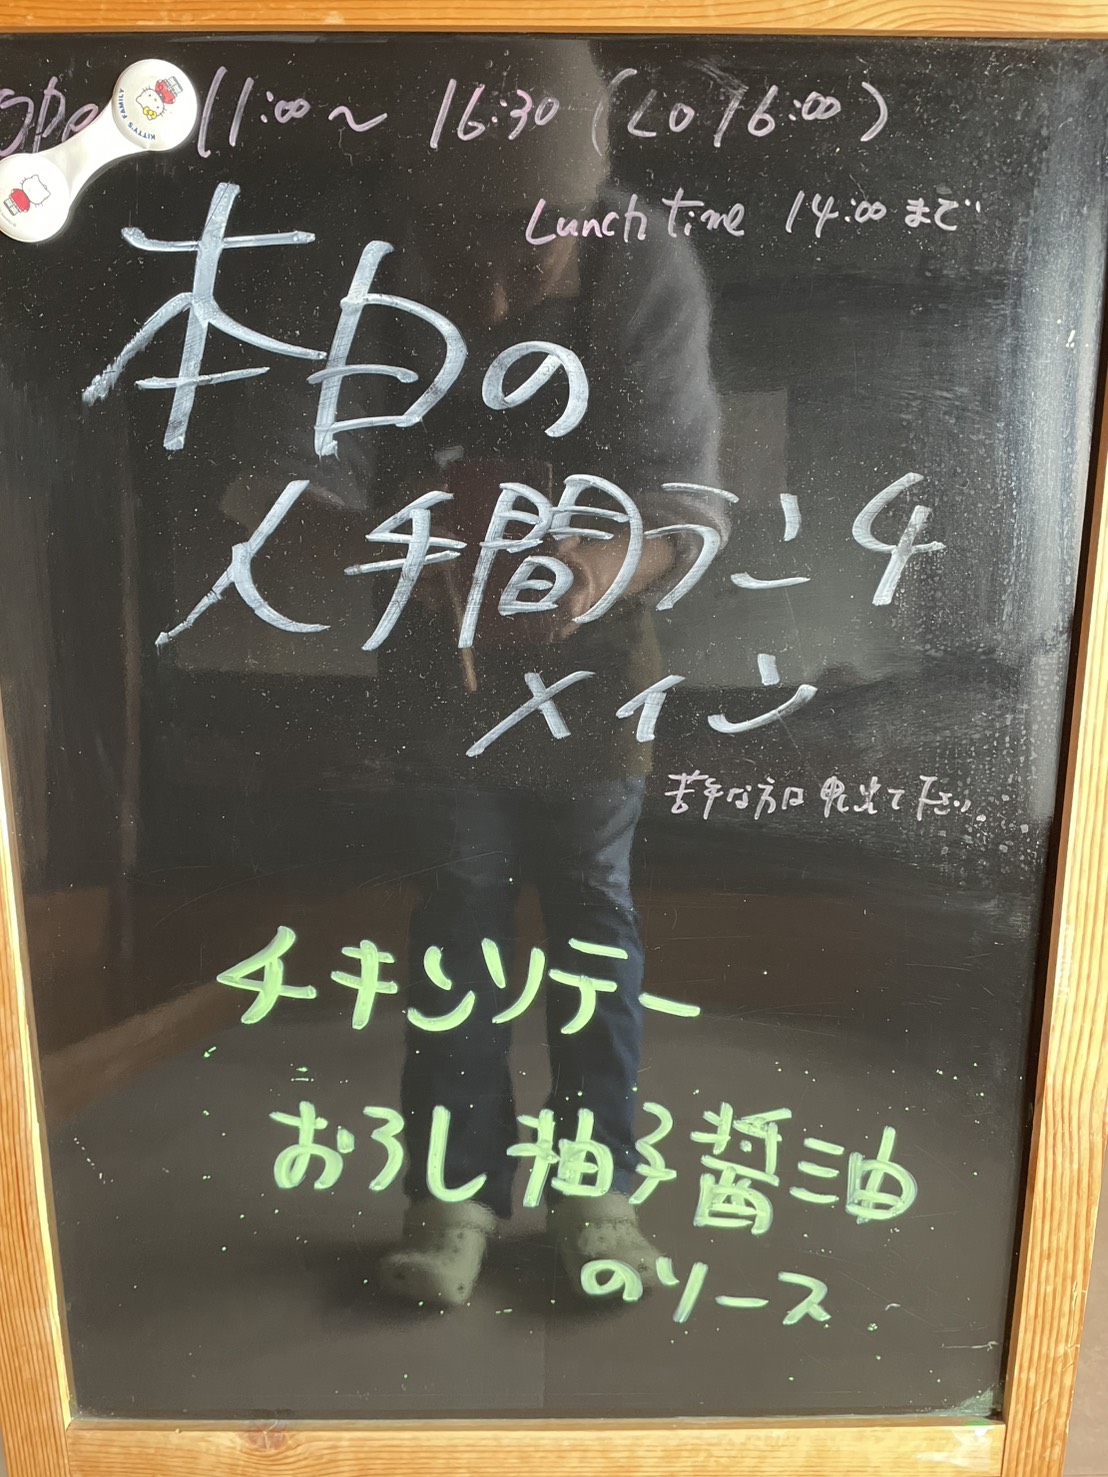 open 11:00〜 16:30 (LO 16:00)
KITTY'S FAMILY
Lunch time 14:00 まで
本日の
人手間ランチ
メイン
苦手な方は申出て下さい。
チキンソテー
おろし柚子醤油
のソース